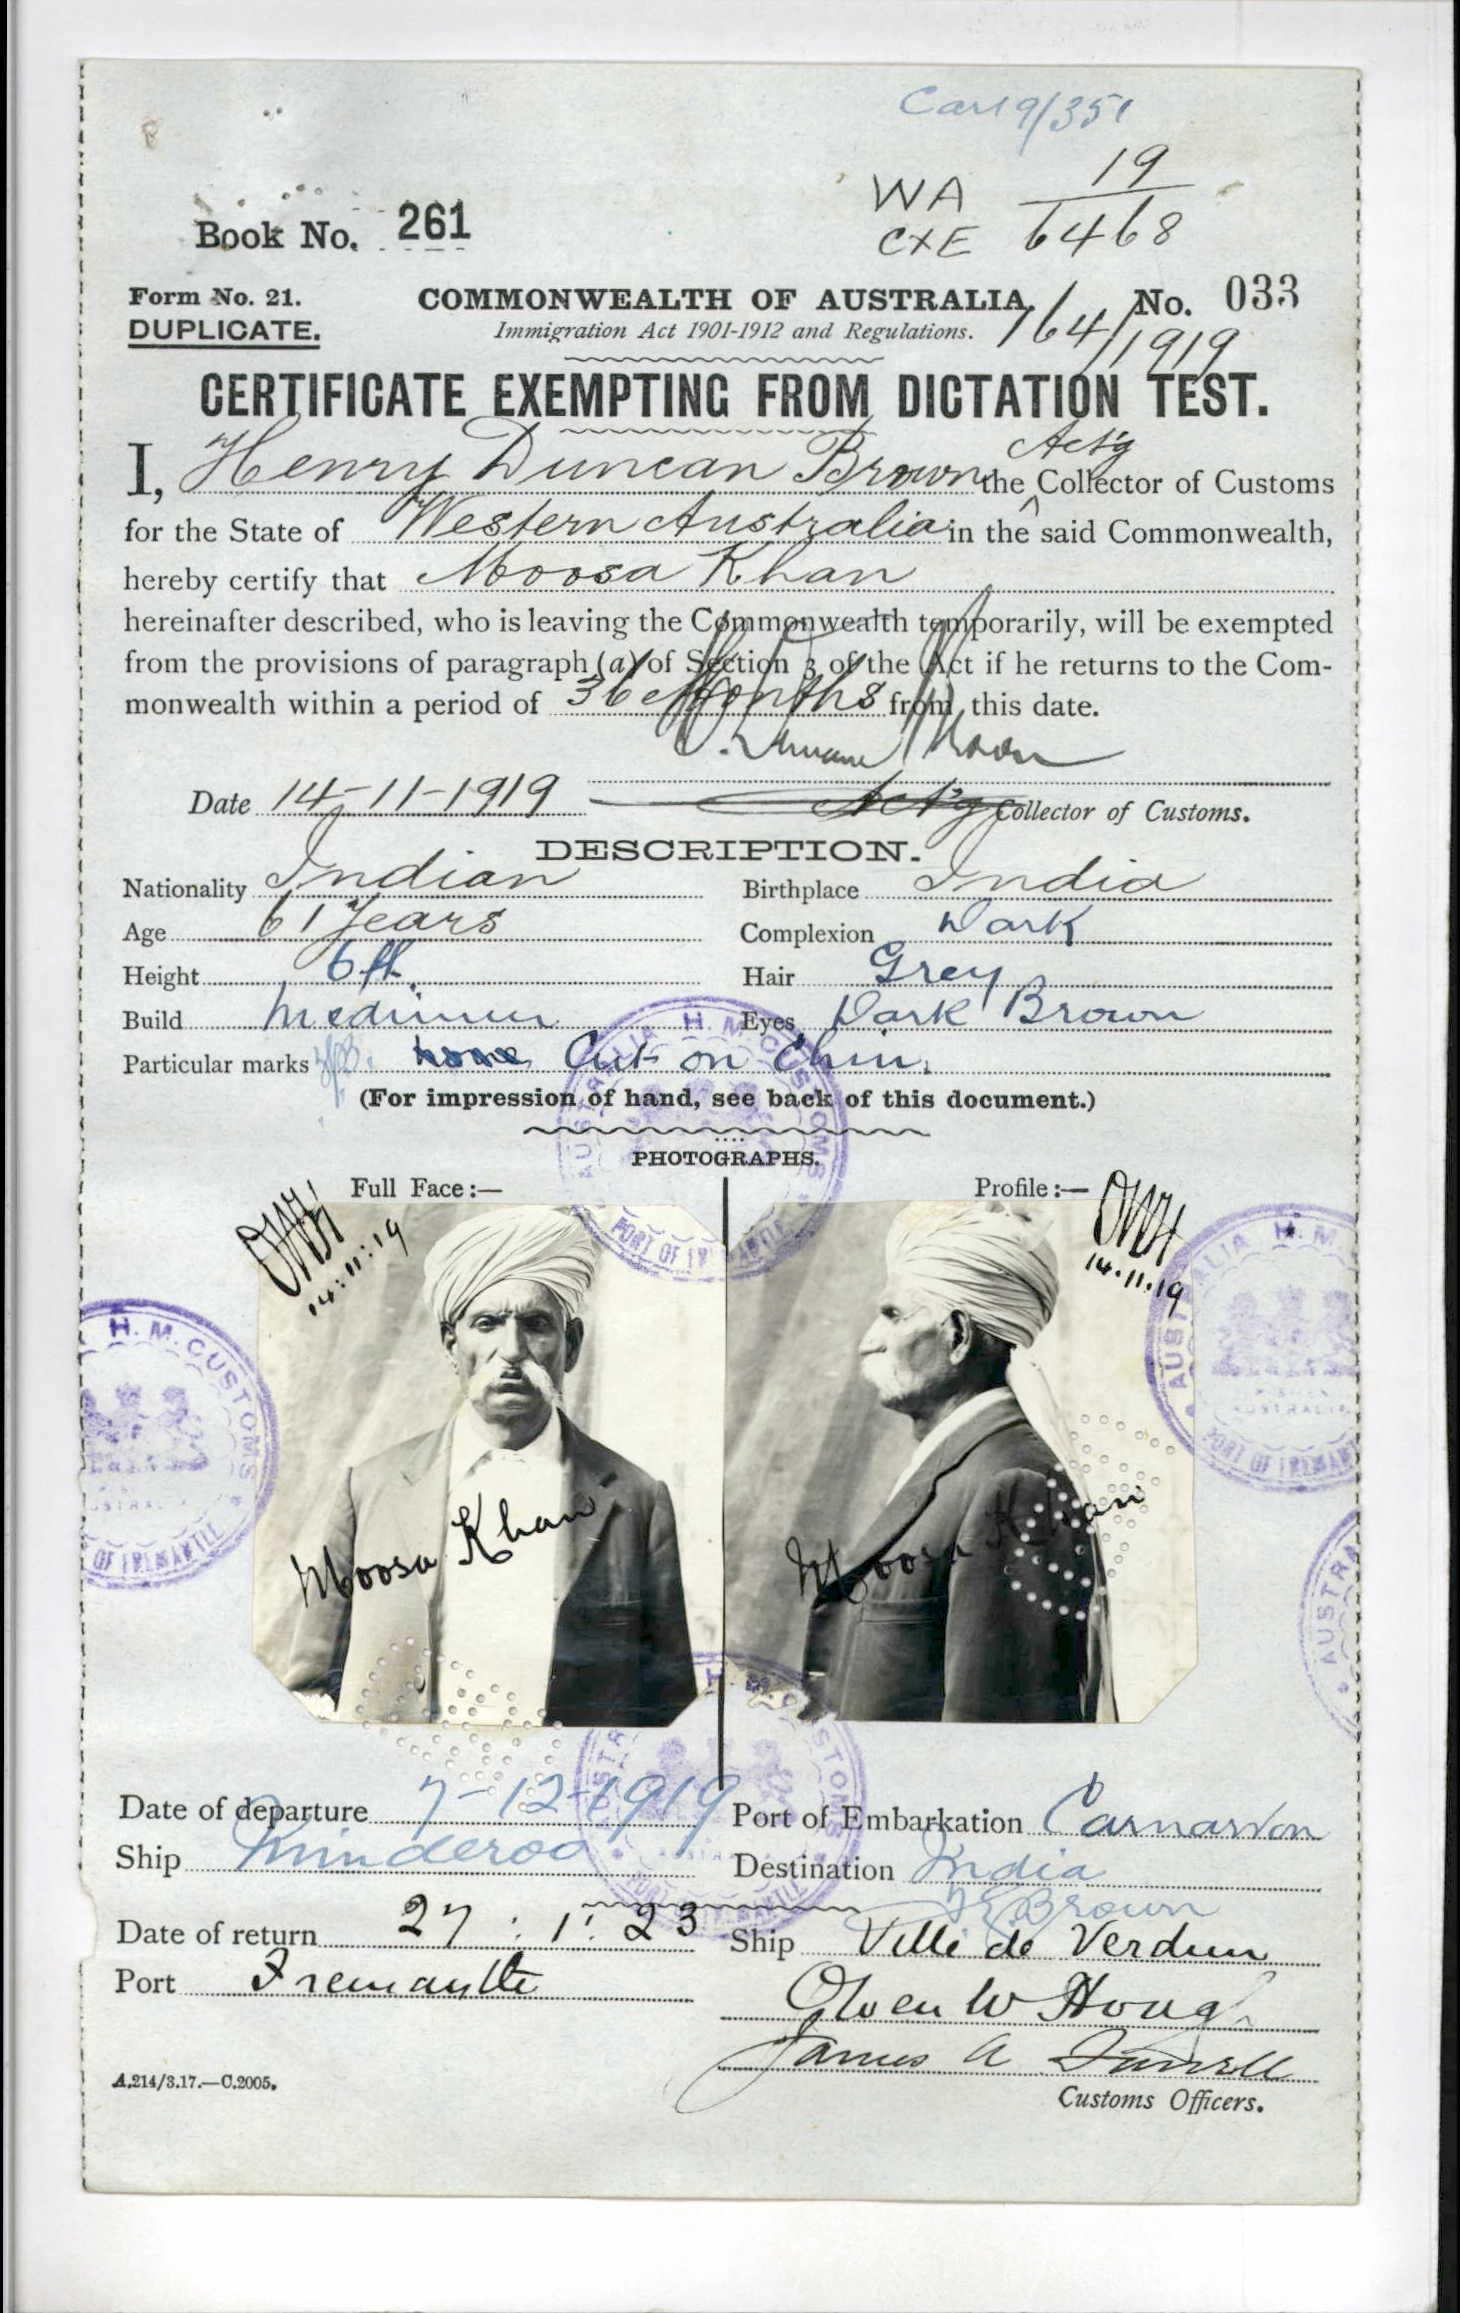 Car19/351
WA 19
CXE 6468
Book No. 261
Form No. 21. COMMONWEALTH OF AUSTRALIA. No. 033
DUPLICATE. Immigration Act 1901-1912 and Regulations. 164/1919
CERTIFICATE EXEMPTING FROM DICTATION TEST.
I, Henry Duncan Brown the Act'g Collector of Customs
for the State of Western Australia in the said Commonwealth,
hereby certify that Moosa Khan
hereinafter described, who is leaving the Commonwealth temporarily, will be exempted
from the provisions of paragraph (a) of Section 3 of the Act if he returns to the Com-
monwealth within a period of 36 Months from this date.
Date 14-11-1919 Act'g Collector of Customs.
DESCRIPTION.
Nationality Indian Birthplace India
Age 61 Years Complexion Dark
Height 6 ft. Hair Grey
Build Medium Eyes Dark Brown
Particular marks none Cut on Chin.
(For impression of hand, see back of this document.)
PHOTOGRAPHS.
Full Face:— Profile:—
14:11:19 14.11.19
Moosa Khan Moosa Khan
AUSTRALIA H.M. CUSTOMS
PORT OF FREMANTLE
H.M. CUSTOMS
OF FREMANTLE
AUSTRALIA H.M.
AUSTRALIA
PORT OF FREMANTLE
AUSTRA
Date of departure 7-12-1919 Port of Embarkation Carnarvon
Ship Minderoo Destination India
Brown
Date of return 27:1:23 Ship Ville de Verdun
Port Fremantle
Customs Officers.
A.214/3.17.—C.2005.